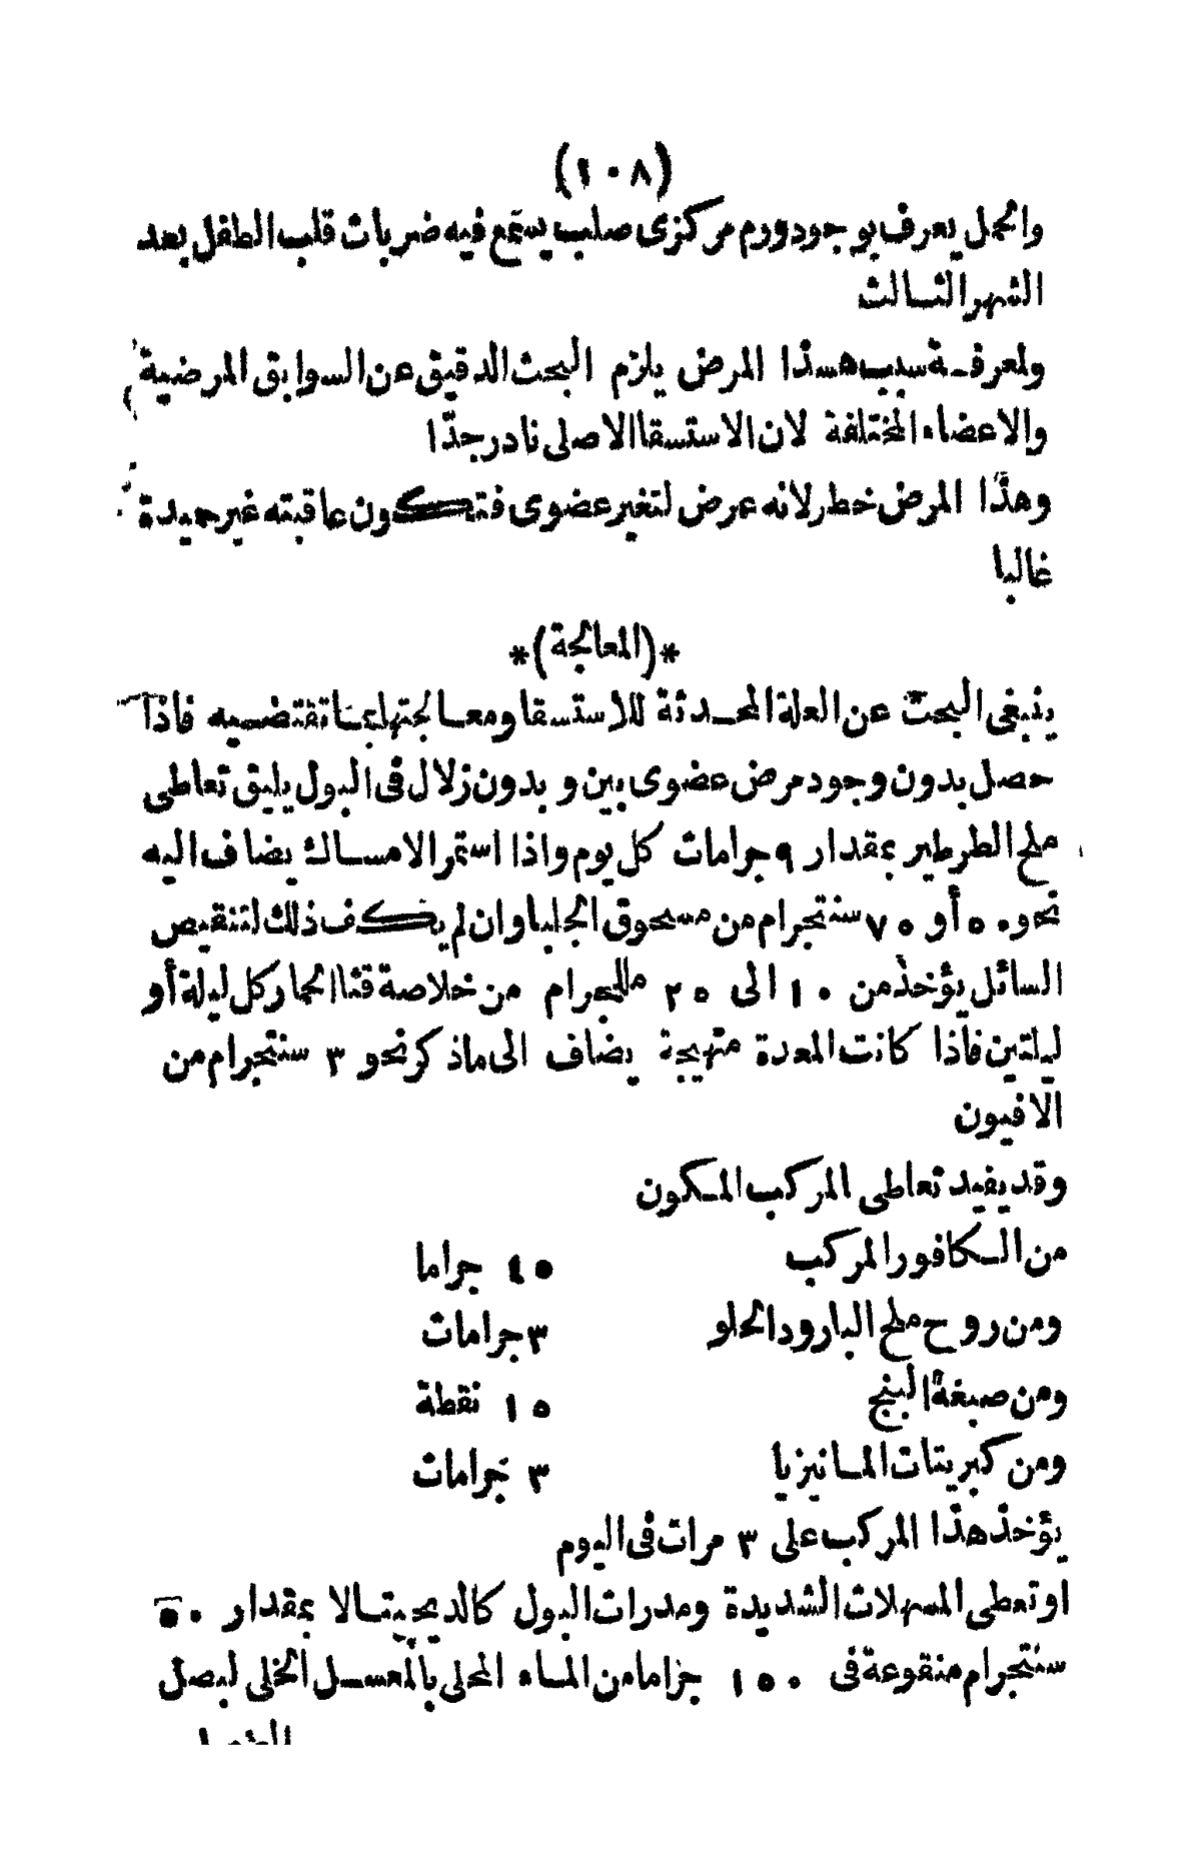 (١٠٨)
والحمل يعرف بوجود ورم مركزى صلب يستمع فيه ضربات قلب الطفل بعد
الشهر الثالث
ولمعرفة سبب هذا المرض يلزم البحث الدقيق عن السوابق المرضية
والاعضاء المختلفة لان الاستسقا الاصلى نادر جدّا
وهذا المرض خطر لانه عرض لتغير عضوى فتكون عاقبته غير حميدة
غالبا
*(المعالجة)*
ينبغى البحث عن العلة المحدثة للاستسقا ومعالجتها بما تقتضيه فاذا
حصل بدون وجود مرض عضوى بين وبدون زلال فى البول يليق تعاطى
ملح الطرطير بمقدار ٩ جرامات كل يوم واذا استمر الامساك يضاف اليه
نحو ٥٠ أو ٧٥ سنتجرام من مسحوق الجلبا وان لم يكف ذلك لتنقيص
السائل يؤخذ من ١٠ الى ٢٥ مللجرام من خلاصة قثا الحمار كل ليلة أو
ليلتين فاذا كانت المعدة متهيجة يضاف الى ماذكر نحو ٣ سنتجرام من
الافيون
وقد يفيد تعاطى المركب المكون
من الكافور المركب ٤٥ جراما
ومن روح ملح البارود الحلو ٣ جرامات
ومن صبغة البنج ١٥ نقطة
ومن كبريتات المانيزيا ٣ جرامات
يؤخذ هذا المركب على ٣ مرات فى اليوم
او تعطى المسهلات الشديدة ومدرات البول كالديجيتالا بمقدار ٥٠
سنتجرام منقوعة فى ١٥٠ جراما من الماء المحلى بالمعسل الخلى ليصل